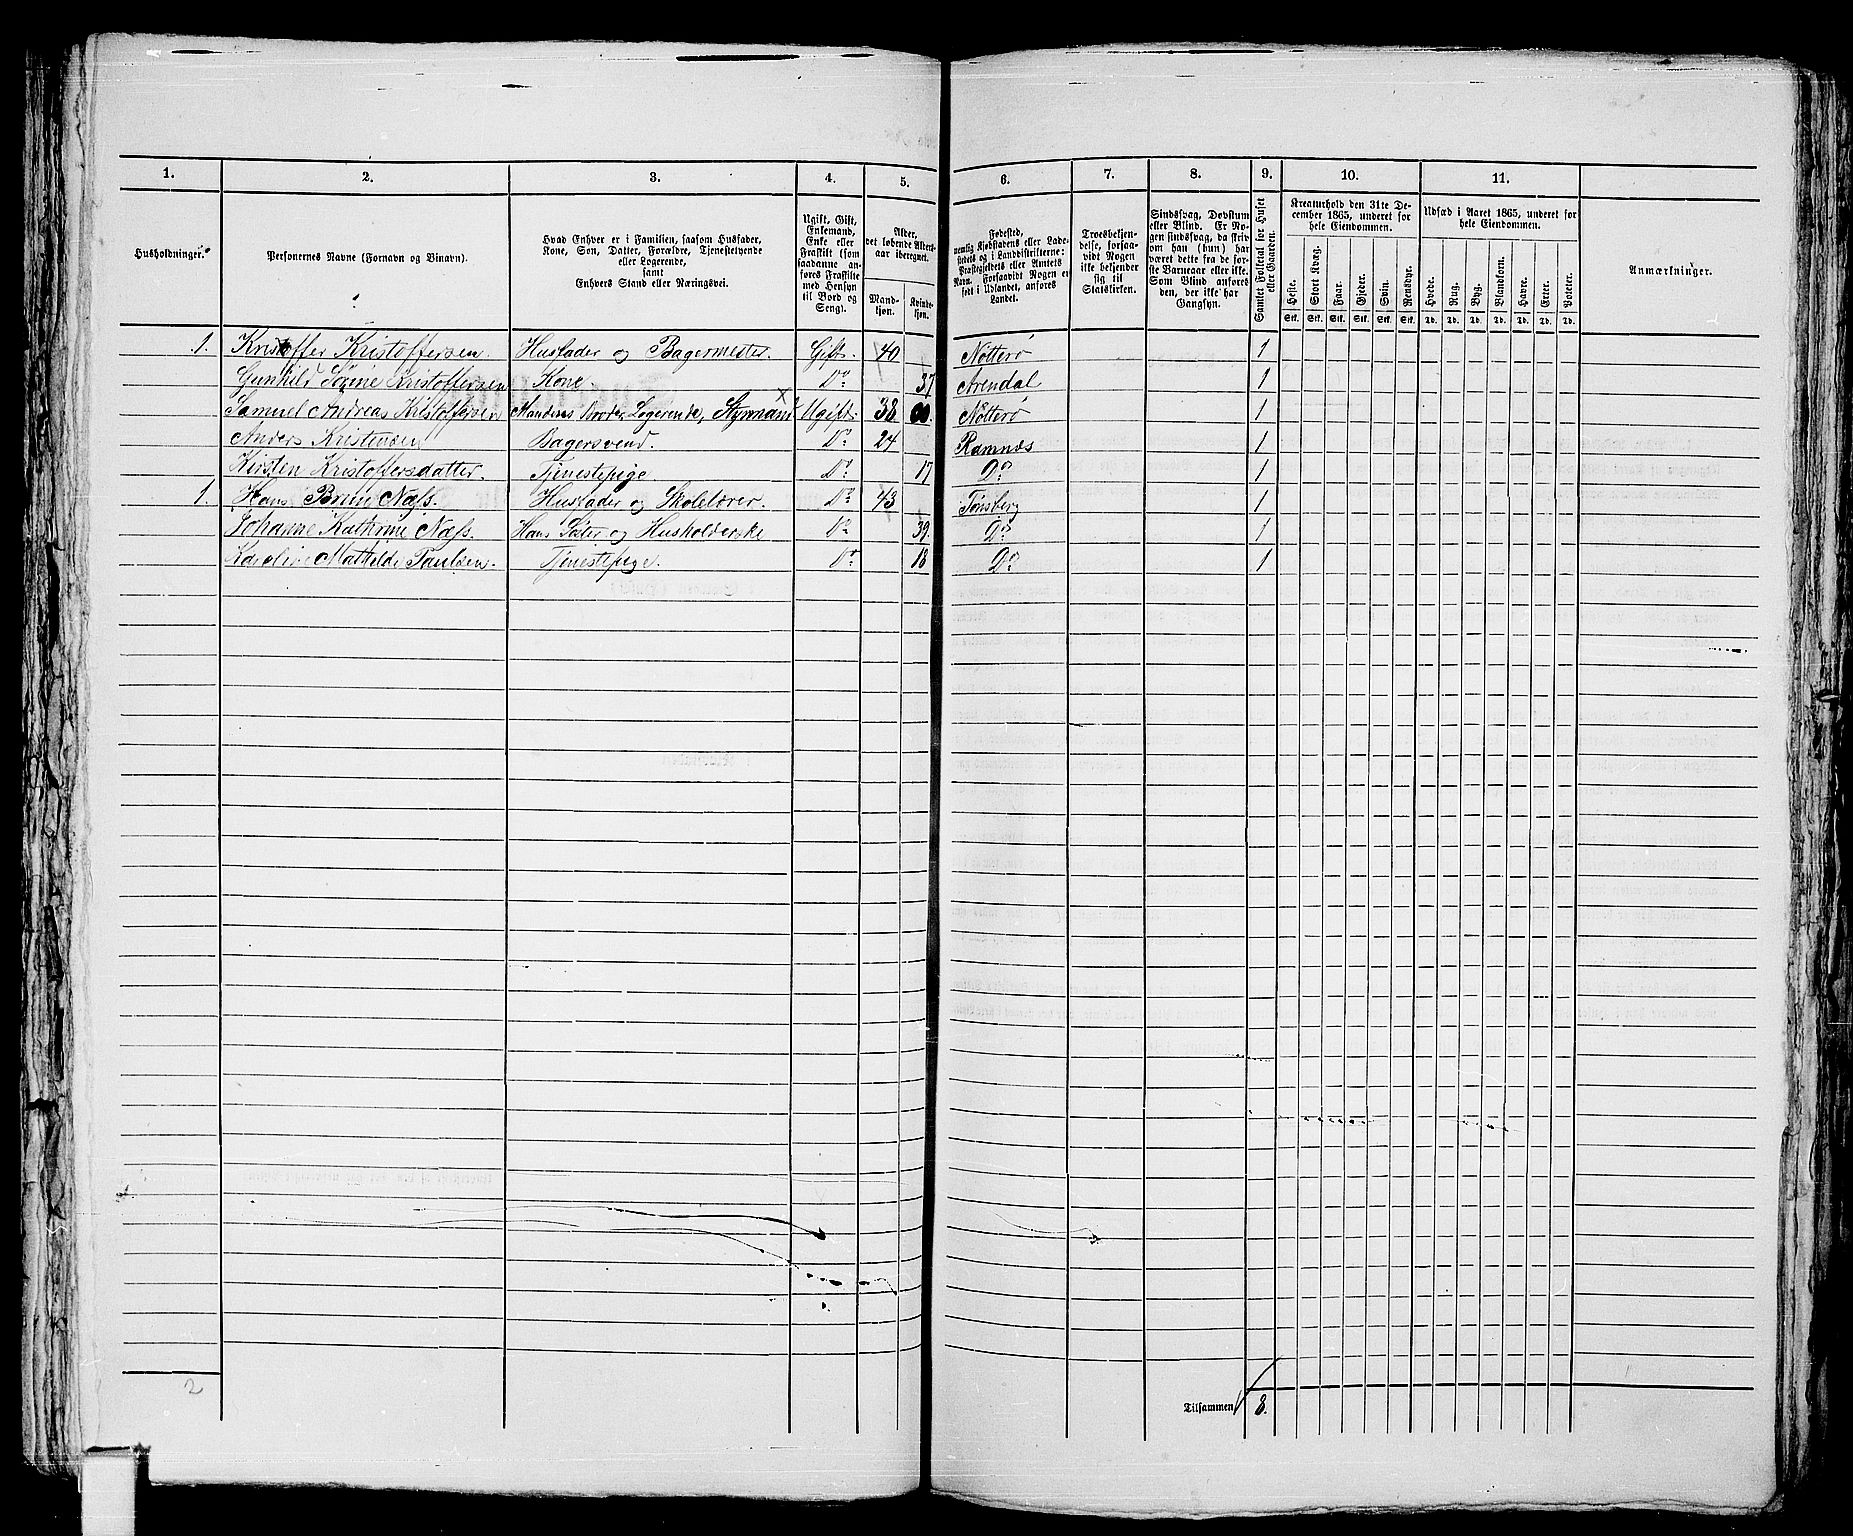 1. 2. 3. 4. 5. 6. 7. 8. 9. 10. 11.
Husholdninger.
Personernes Navne (Fornavn og Binavn).
Hvad Enhver er i Familien, saasom Husfader,
Kone, Søn, Datter, Forældre, Tjenestetyende
eller Logerende,
samt
Enhvers Stand eller Næringsvei.
Ugift, Gift,
Enkemand,
Enke eller
Fraskilt (som
saadanne an-
føres Fraskilte
med Hensyn
til Bord og
Seng).
Alder,
det løbende Alders-
aar iberegnet.
Mand-
kjøn.
Kvinde-
kjøn.
Fødested,
nemlig Kjøbstadens eller Lade-
stedets og i Landdistrikterne:
Præstegjeldets eller Amtets
Navn. Forsaavidt Nogen er
født i Udlandet, anføres
Landet.
Troesbekjen-
delse, forsaa-
vidt Nogen
ikke bekjender
sig til
Statskirken.
Sindssvag, Døvstum
eller Blind. Er No-
gen sindssvag, da skriv
om han (hun) har
været dette fra de før-
ste Barneaar eller ikke.
Som Blind anføres
den, der ikke har
Gangsyn.
Samlet Folketal for Huset
eller Gaarden.
Kreaturhold den 31te De-
cember 1865, underet for
hele Eiendommen.
Heste. Stort Kvæg. Faar. Gjeder. Svin. Rensdyr.
Stk. Stk. Stk. Stk. Stk. Stk.
Udsæd i Aaret 1865, underet for
hele Eiendommen.
Hvede. Rug. Byg. Blandkorn. Havre. Erter. Poteter.
Td. Td. Td. Td. Td. Td. Td.
Anmærkninger.
1. Kristoffer Kristoffersen. Husfader og Bagermester. Gift. 40 Nötterö 1
Gunhild Sörine Kristoffersen Kone. Do 37 Arendal 1
Samuel Andreas Kristoffersen Mandens Broder, Logerende, Styrmand Ugift. 38 Nötterö 1
Anders Kristensen Bagersvend. Do 24 Ramnæs 1
Kirsten Kristoffersdatter. Tjenestepige Do 17 Do 1
1. Hans Bruun Næss. Husfader og Skolelærer. Do 43 Tønsberg 1
Johanne Kathrine Næss. Hans Söster og Husholderske Do 39. Do 1
Karoline Mathilde Paulsen. Tjenestepige. Do 18 Do 1
2
Tilsammen 8.